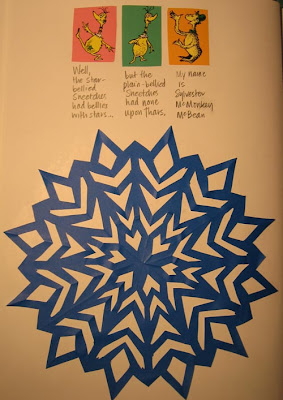 Well,
the star-
bellied
Sneetches
had bellies
with stars...
but the
plain-bellied
Sneetches
had none
upon thars.
My name
is
Sylvester
McMonkey
McBean